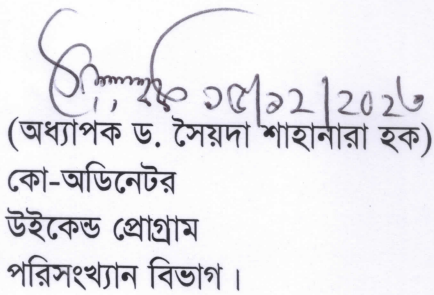 ১৫/১২/২০২৬
(অধ্যাপক ড. সৈয়দা শাহানারা হক)
কো-অডিনেটর
উইকেন্ড প্রোগ্রাম
পরিসংখ্যান বিভাগ।